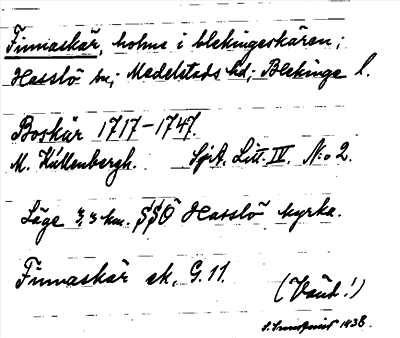 Finnaskär, holme i blekingeskären;
Hasslö sn; Medelstads hd; Blekinge l.
Boskär 1717-1747.
M. Kullenbergh. SjöA. Litt. IV. N:o 2.
Läge 3,3 km. SSO Hasslö kyrka.
Finnaskär ek. G. 11.
(Vänd!)
1938.